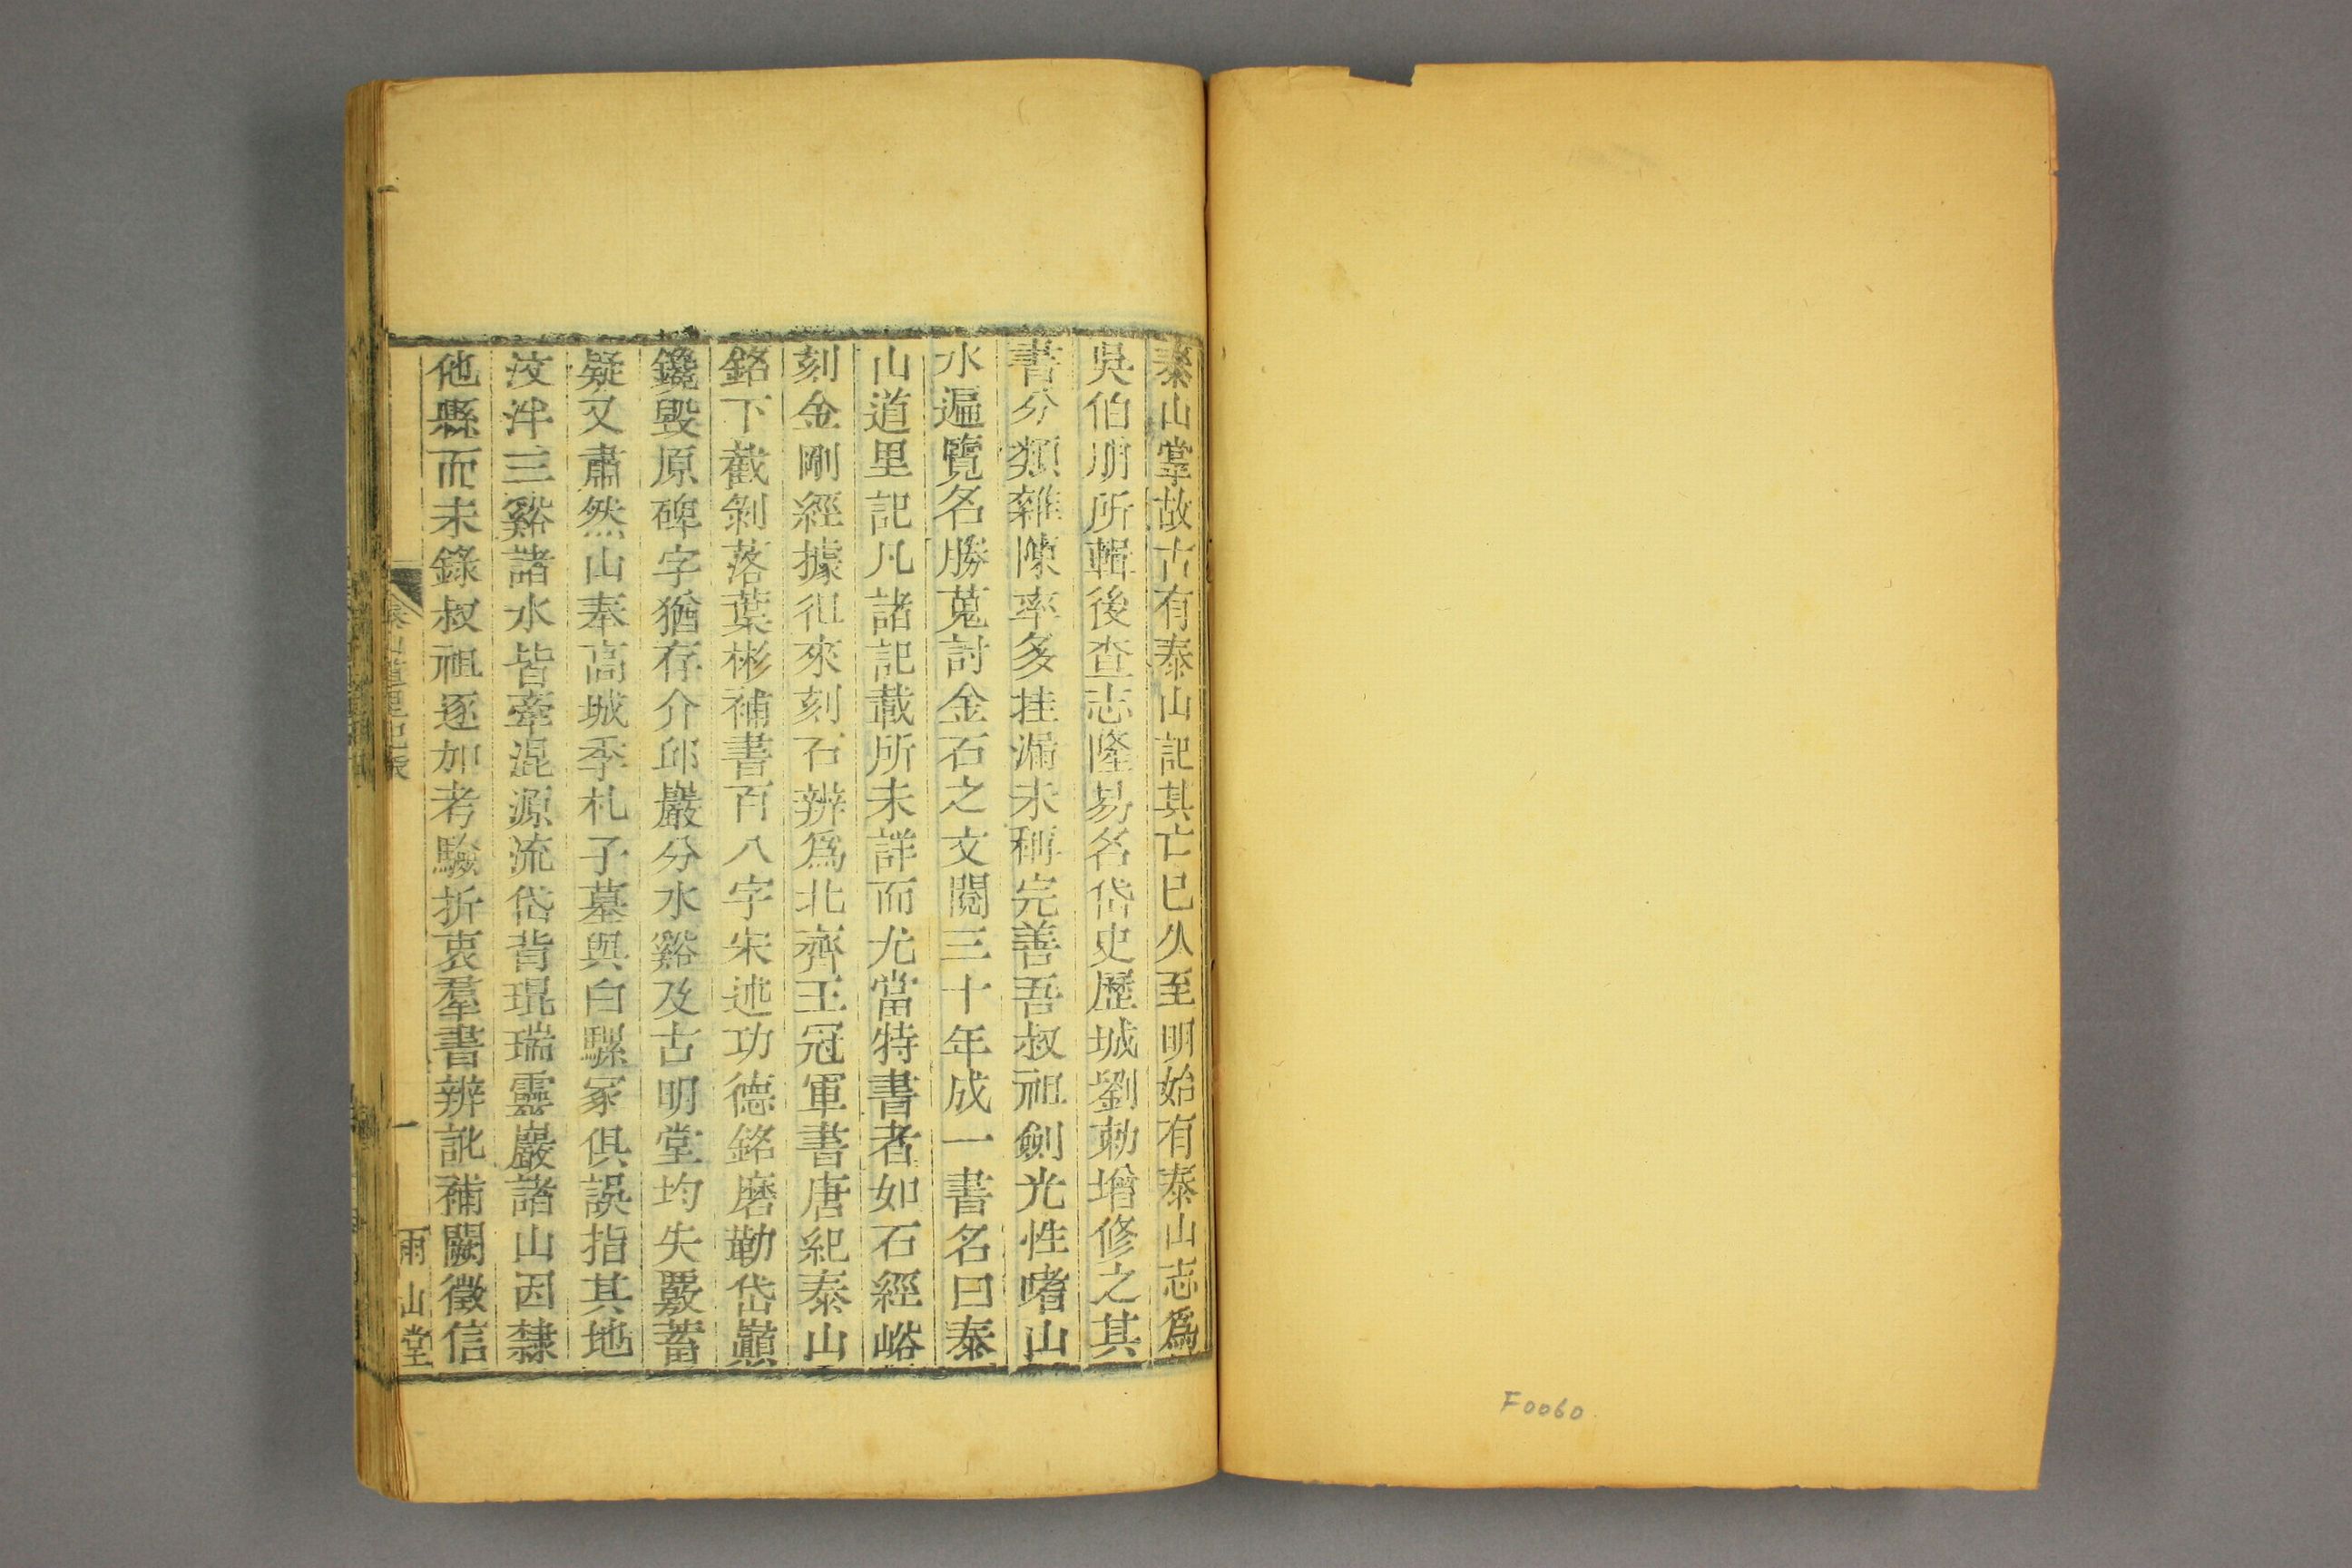 泰山掌故古有泰山記其亡已久至明始有泰山志爲
吳伯朋所輯後查志隆易名岱史歷城劉勅增修之其
書分類雜陳率多挂漏未稱完善吾叔祖劍光性嗜山
水遍覽名勝蒐討金石之文閱三十年成一書名曰泰
山道里記凡諸記載所未詳而尤當特書者如石經峪
刻金剛經據徂來刻石辨爲北齊王冠軍書唐紀泰山
銘下截剝落葉彬補書百八字宋述功德銘磨勒岱巔
鑱毀原碑字猶存介邱巖分水谿及古明堂均失覈蓄
疑又肅然山奉高城季札子墓與白騾冢俱誤指其地
汶泮三谿諸水皆牽混源流岱背琨瑞靈巖諸山因隸
他縣而未錄叔祖逐加考驗折衷羣書辨訛補闕徵信
泰山道里記
一
雨山堂
F0060